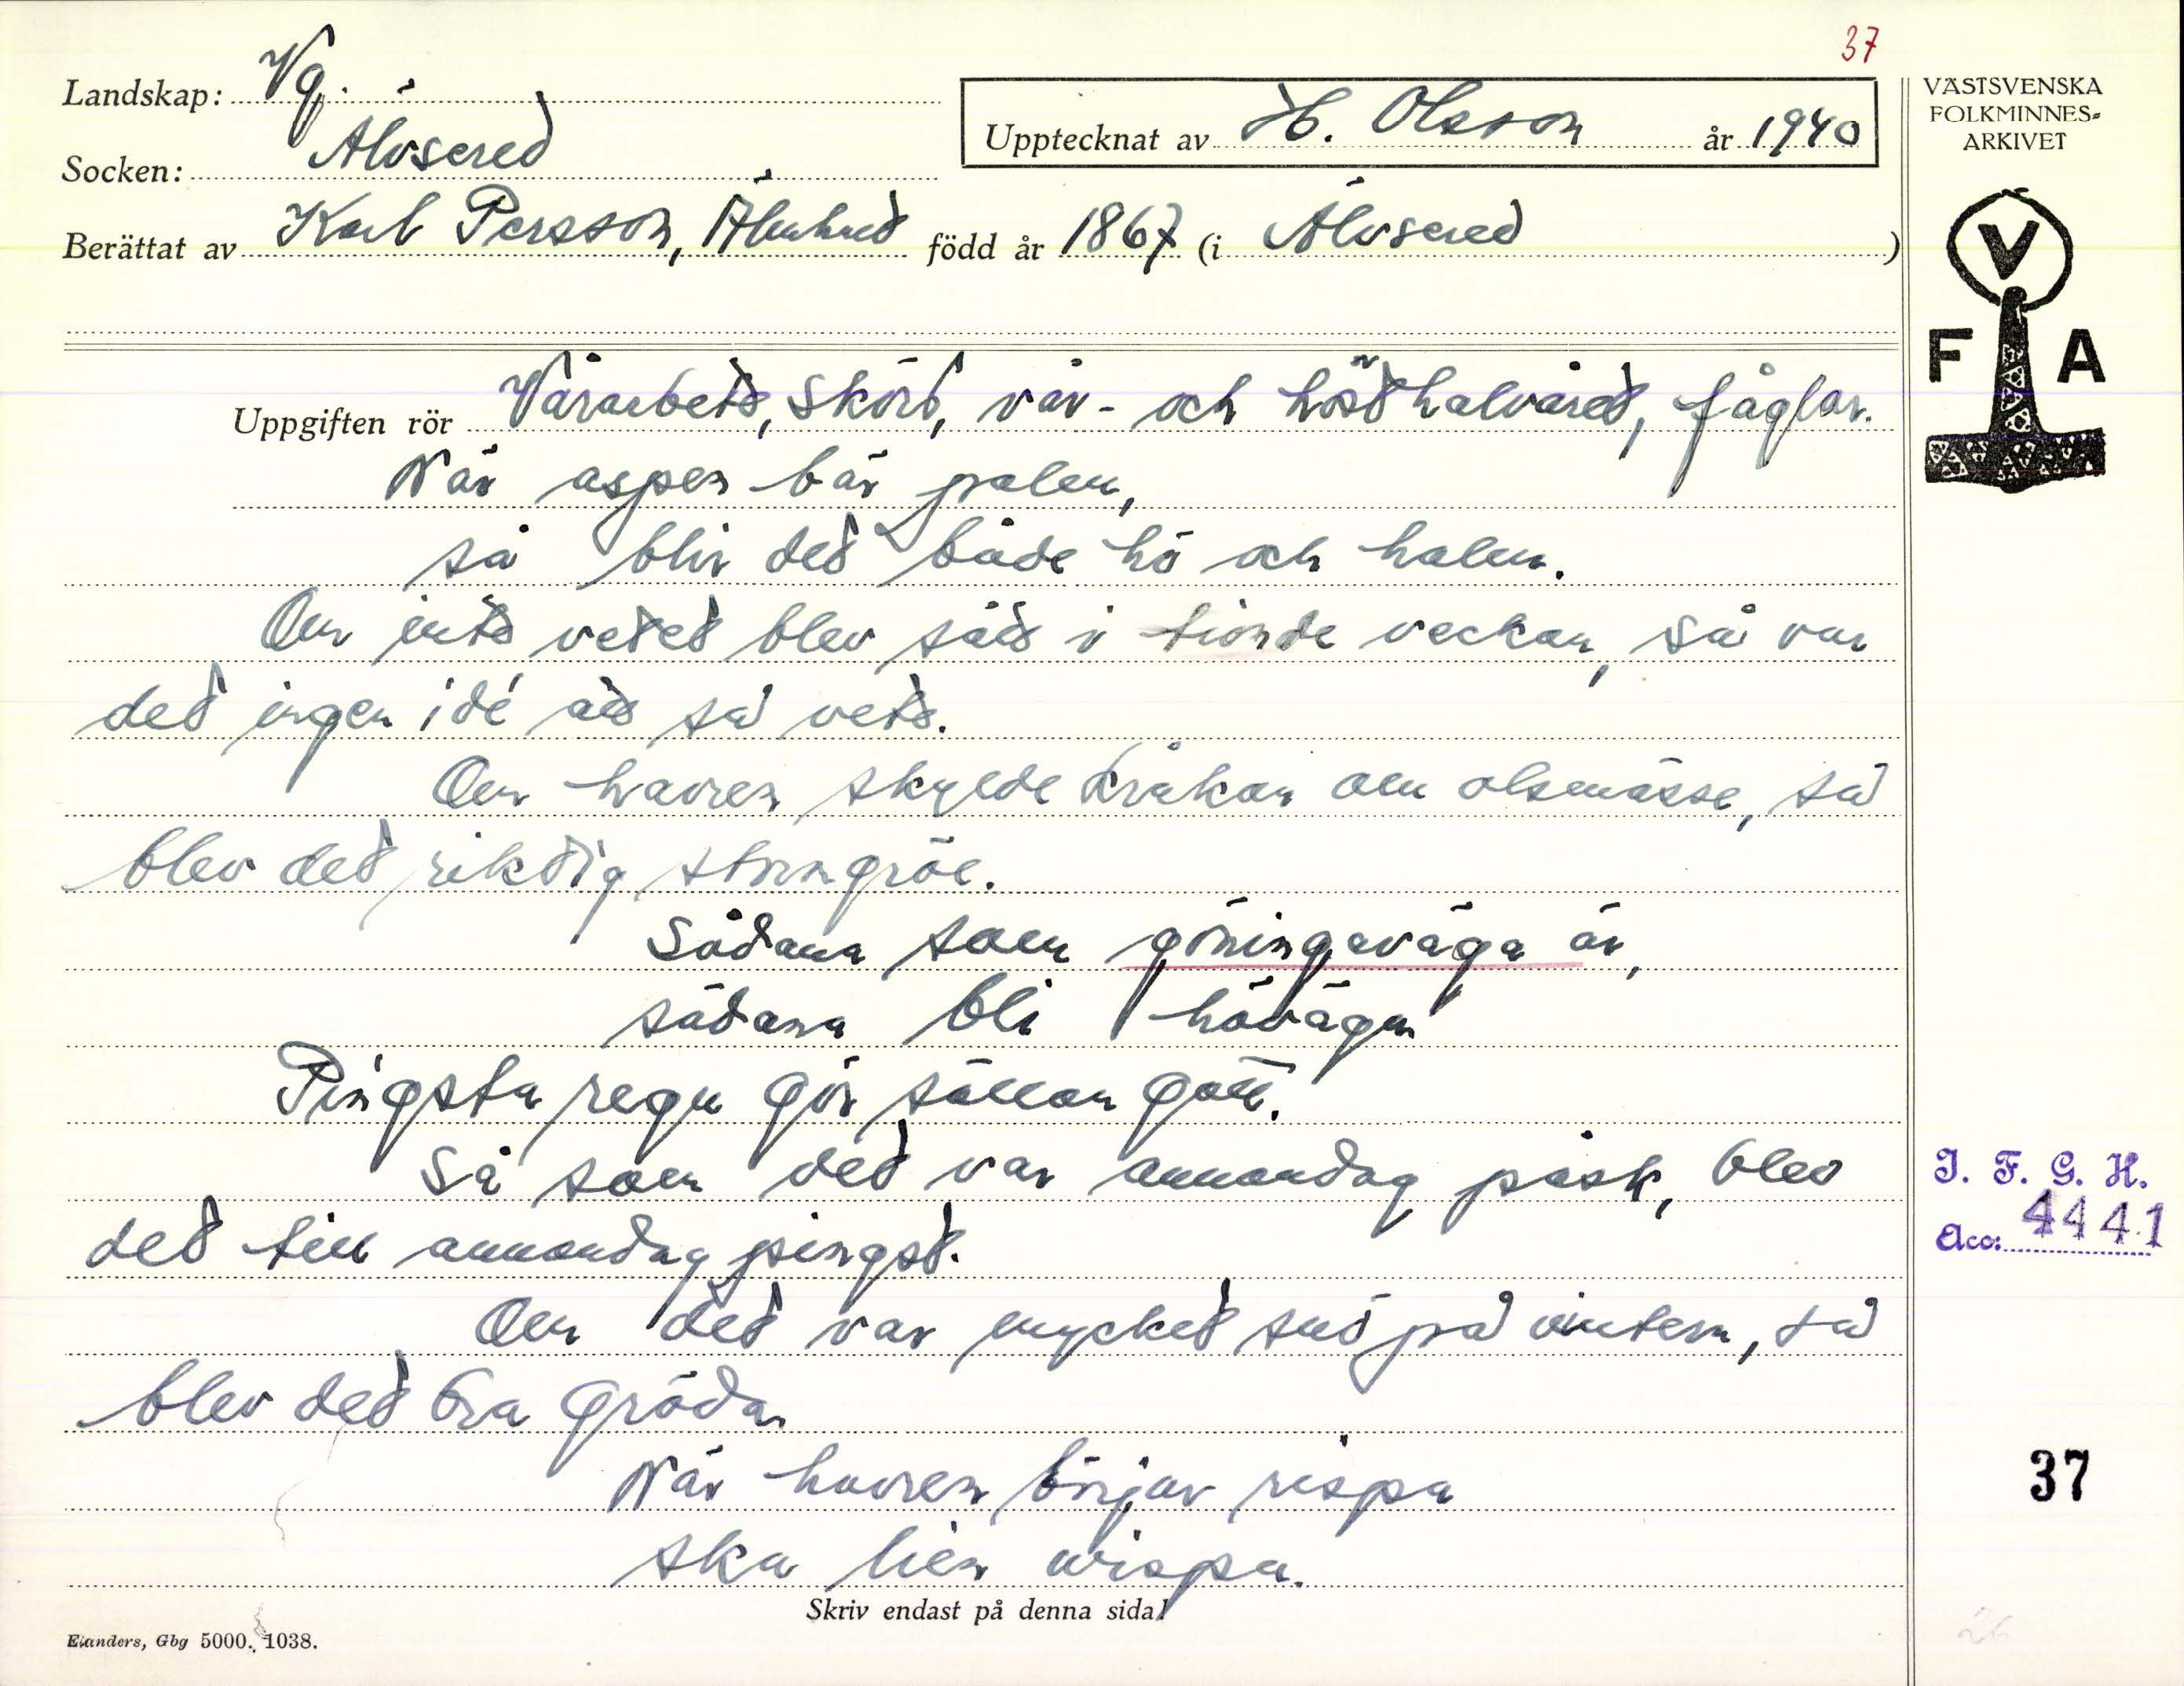 37
Landskap: Vg.
Socken: Älvsered
Upptecknat av H. Olsson år 1940
Berättat av Karl Persson, född år 1867 (i Älvsered)
VÄSTSVENSKA
FOLKMINNES-
ARKIVET
V
F A
Uppgiften rör Vårarbete, skörd, vår- och hösthalvåret, fåglar.
När aspen bär palm,
så blir det både hö och halm.
Om inte vetet blev sått i tionde veckan, så var
det ingen idé att så vete.
Om havren skylde kråkan om olsmässe, så
blev det riktig storngröe.
Sådana som göningaväga är,
sådana bli höväga
Pingsta regn gör sällan gott.
Så som det var annandag påsk, blev
det till annandag pingst.
Om det var mycket snö på vintern, så
blev det bra gröda.
När havren börjar rispa
ska lien vispa.
Skriv endast på denna sida!
Elanders, Gbg 5000. 1038.
I. F. G. H.
Acc: 4441
37
26